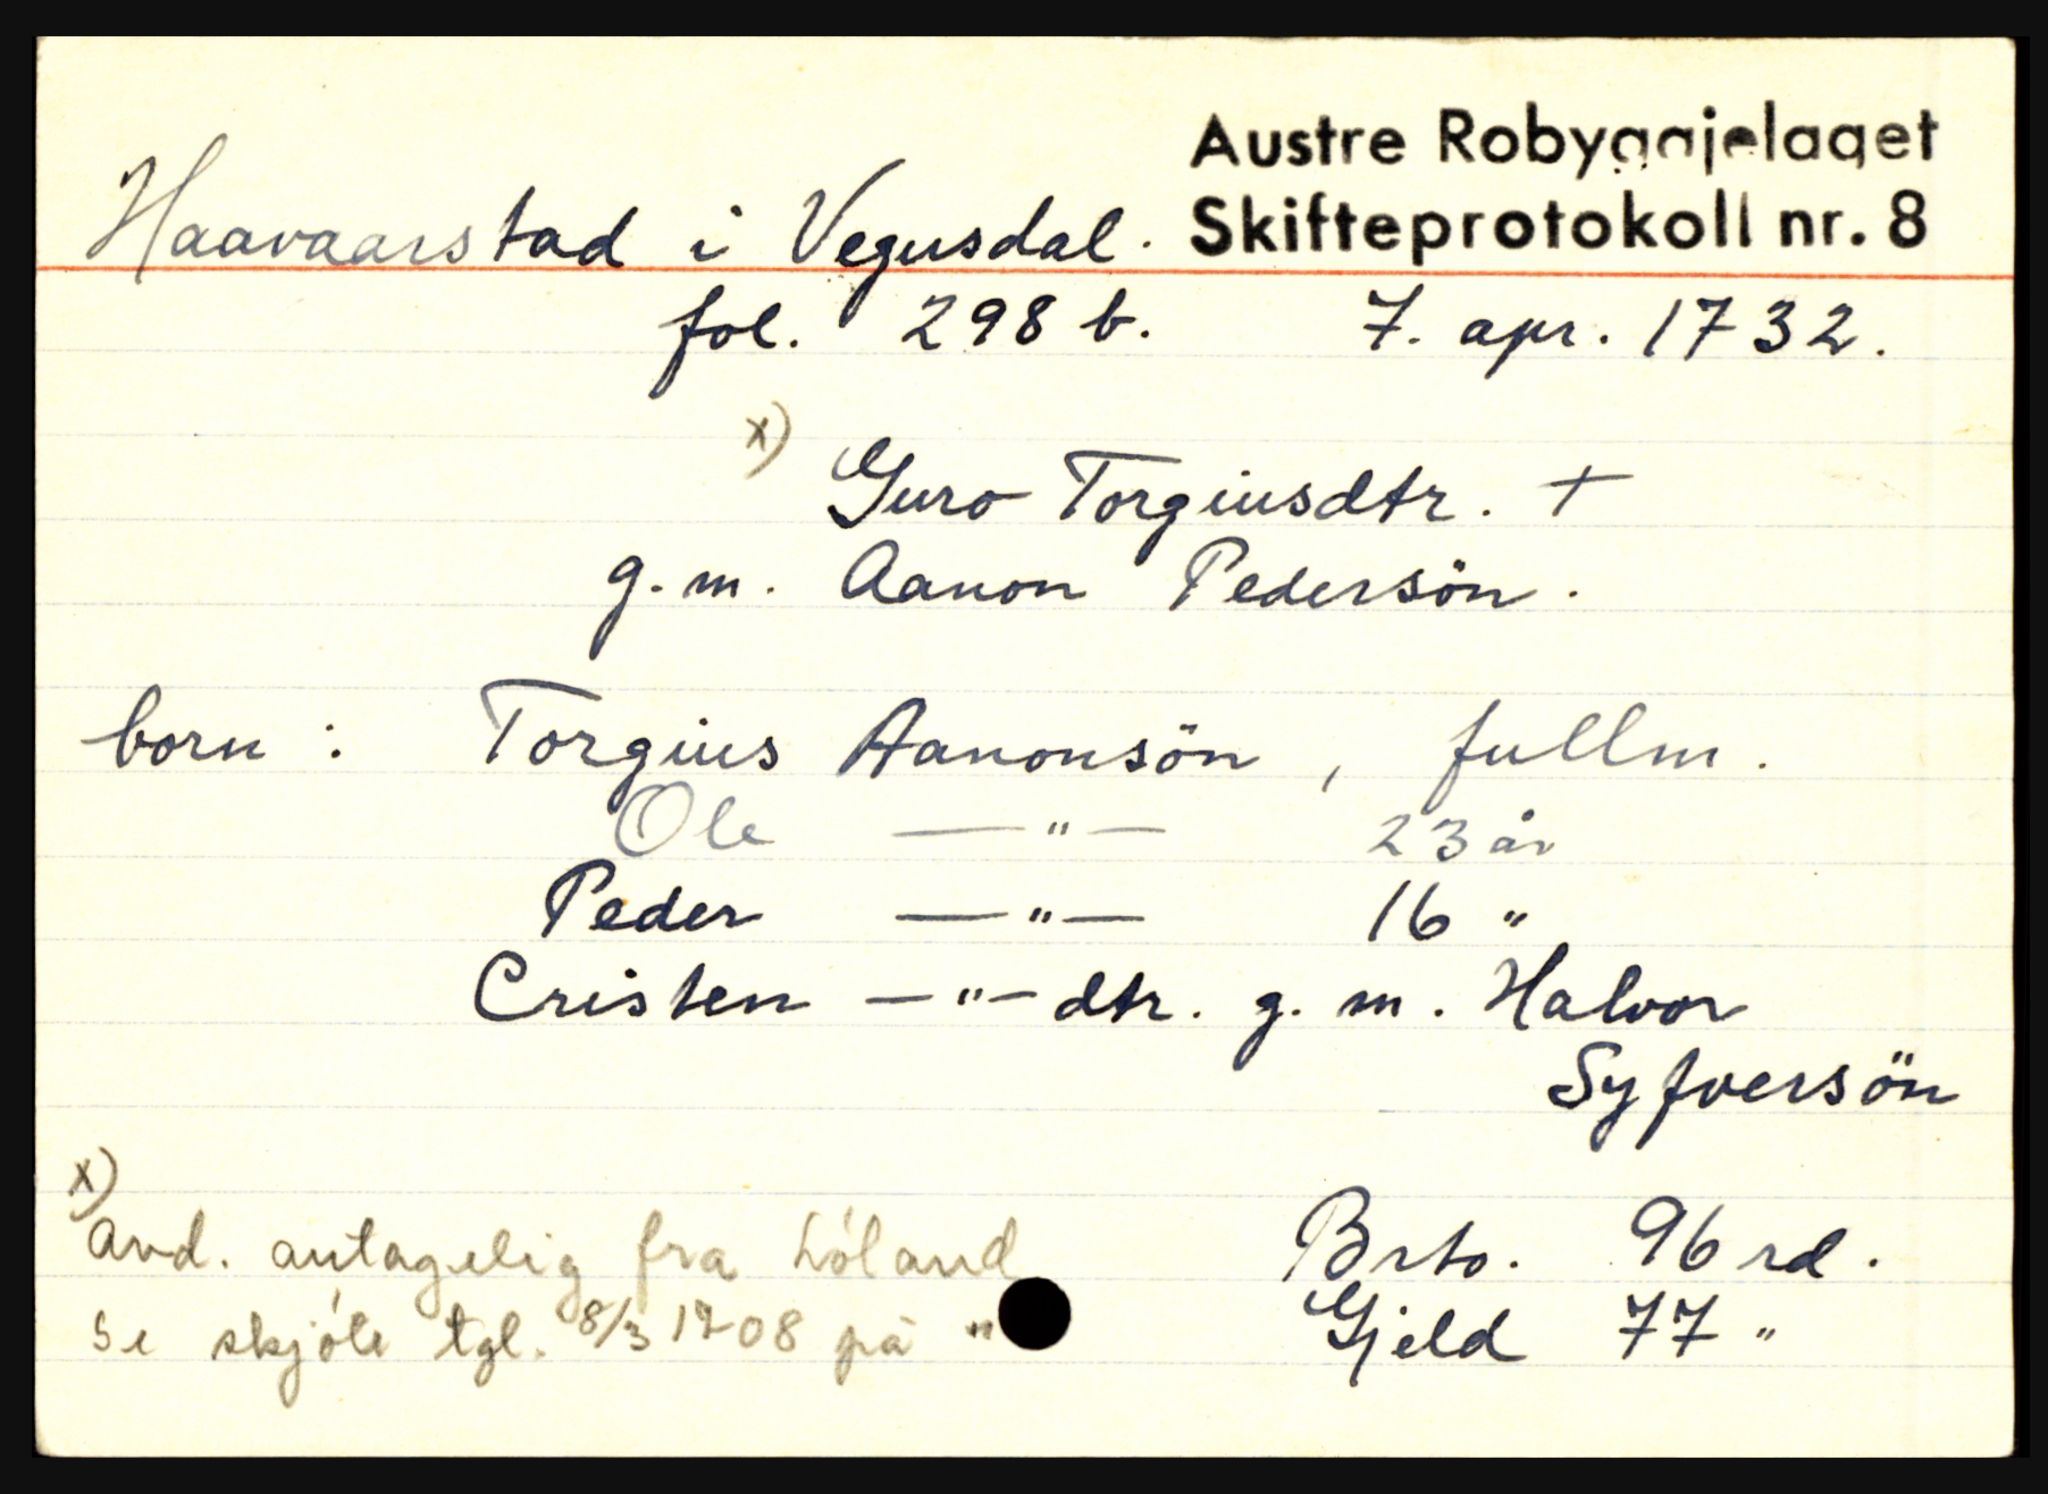 Austre Robyggjelaget
Haavaarstad i Vegusdal. Skifteprotokoll nr. 8
fol. 298 b. 7. apr. 1732.
x) Guro Torgiusdtr. +
g. m. Aanon Pedersön.
born : Torgius Aanonsön , fullm.
Ole —"— 23 år
Peder —"— 16 "
Cristen —"— dtr. g. m. Halvor
Syfversön
x)
Avd. antagelig fra Lóland
Se skjóte tgl. 8/3 1708 på "
Brto. 96 rd.
Gjeld 77 "